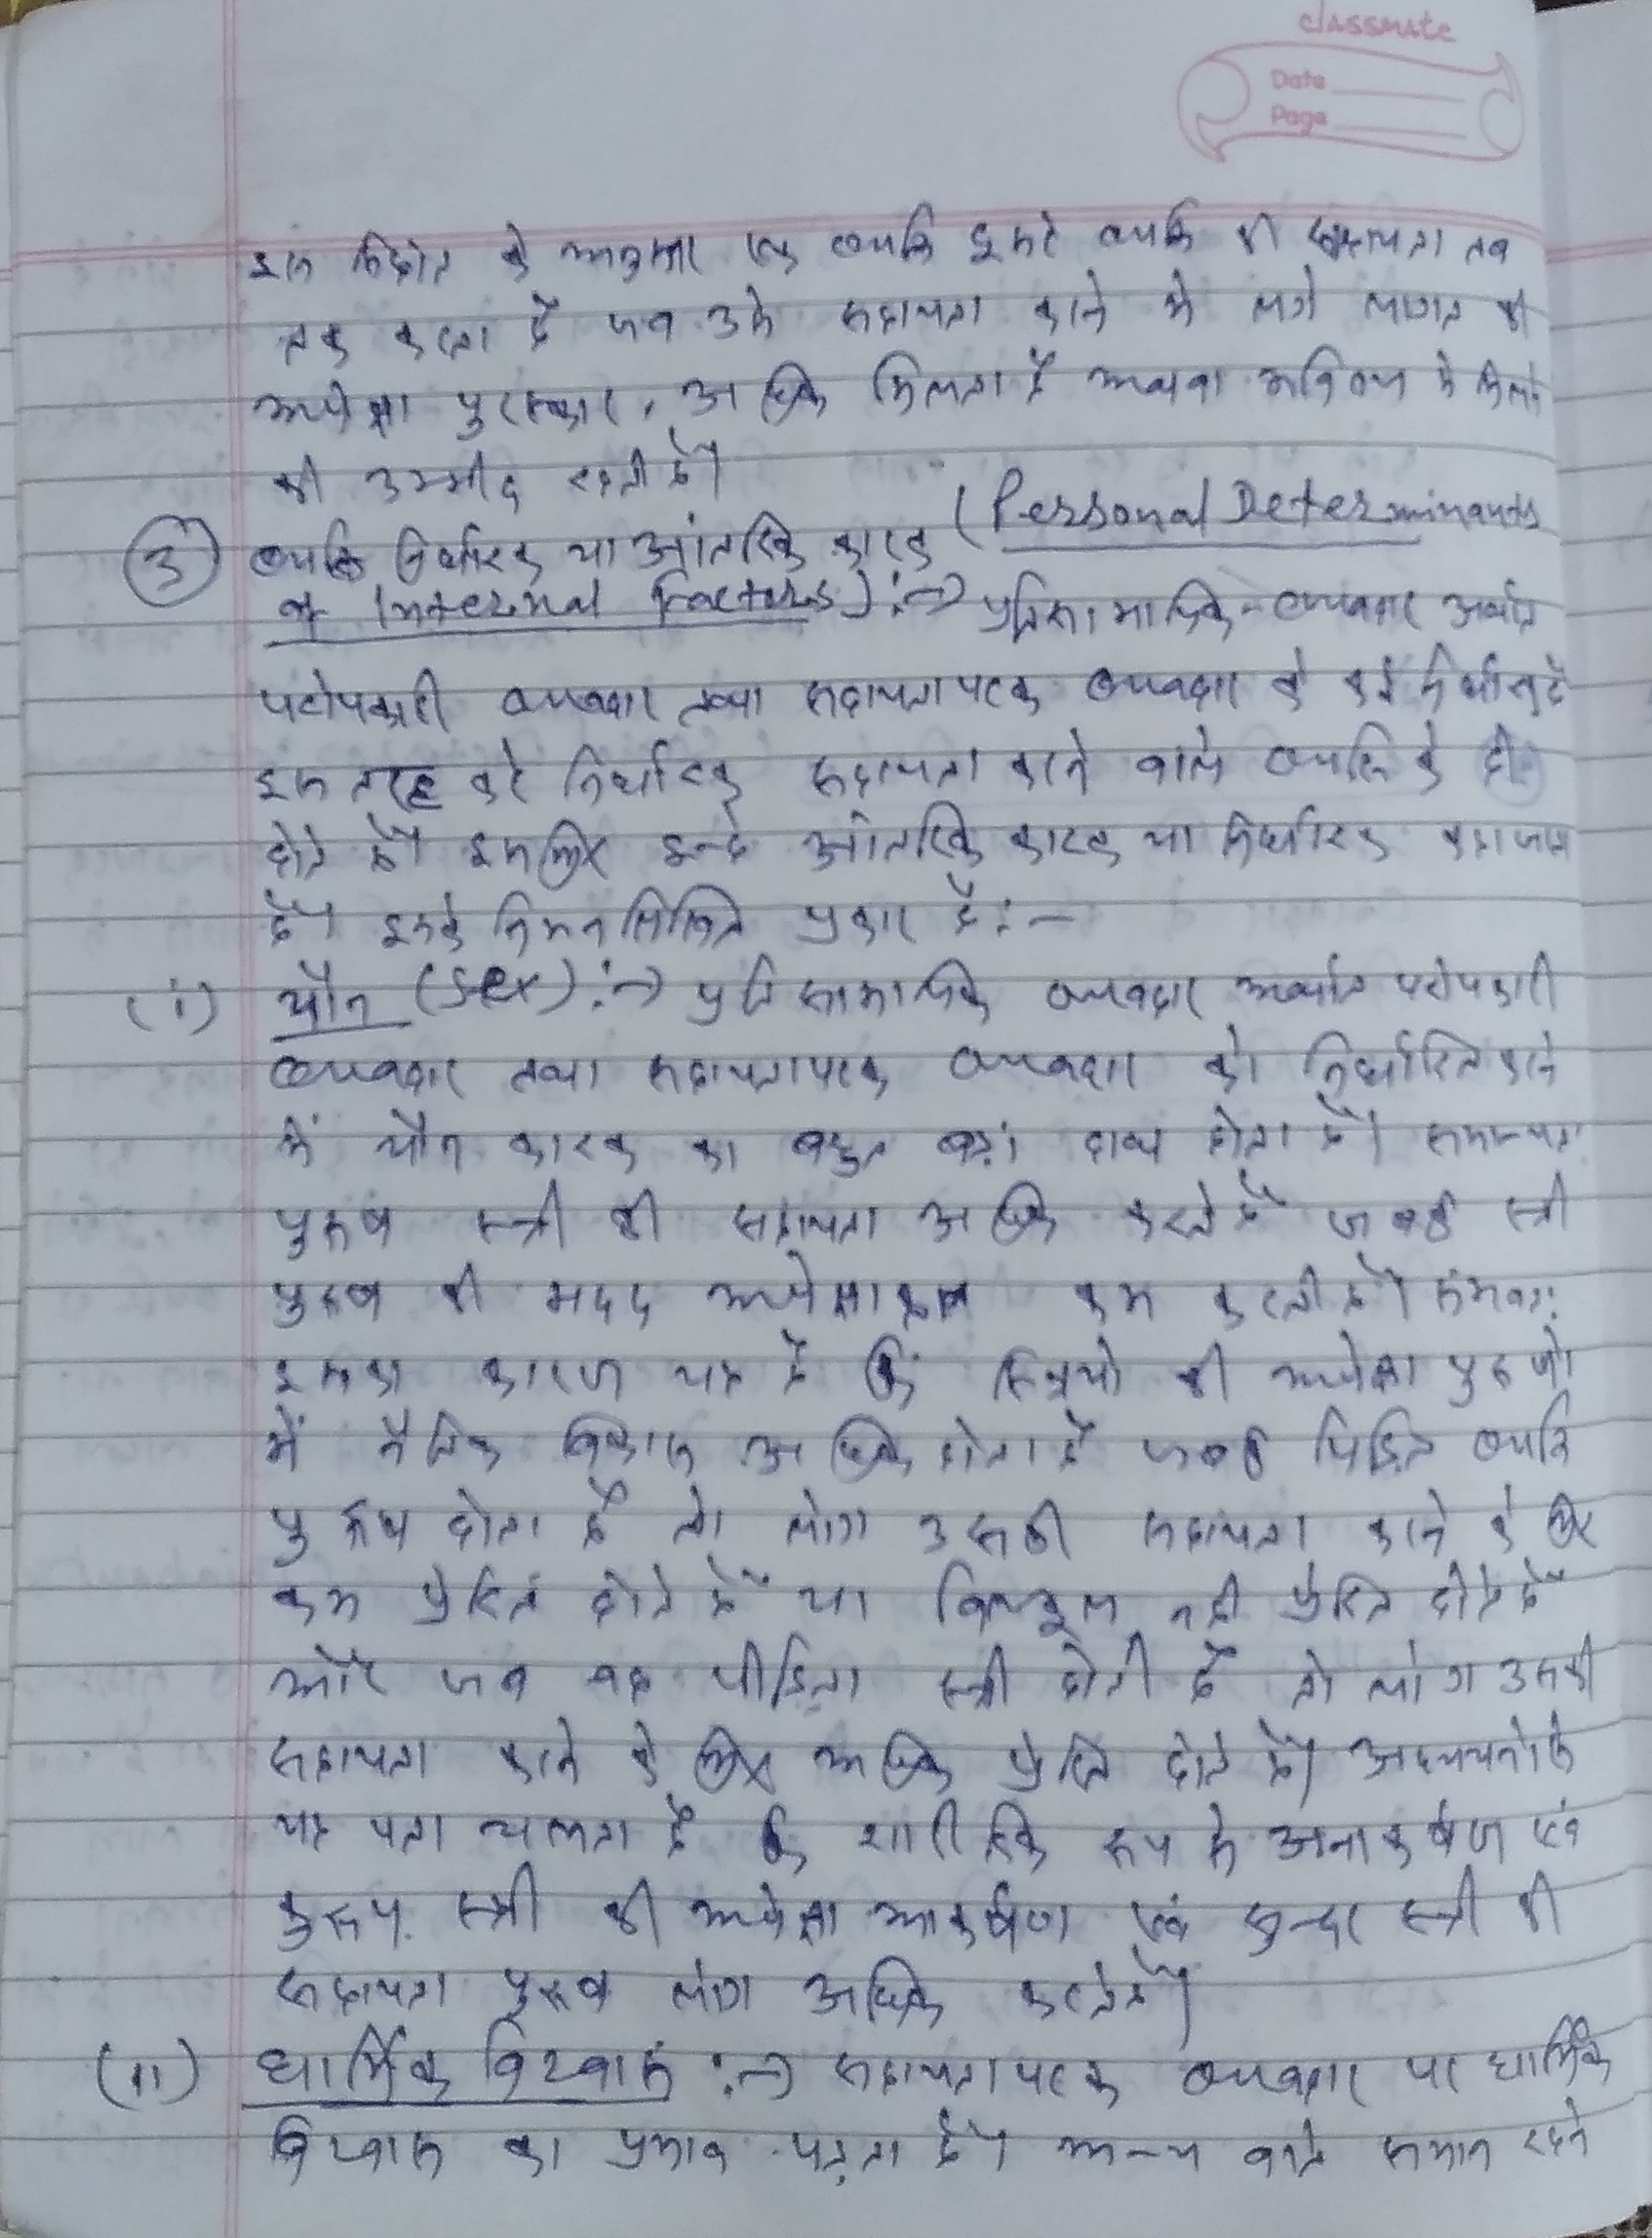 classmate
Date
Page
इस सिद्धांत के अनुसार एक व्यक्ति दूसरे व्यक्ति की सहायता तब
तक करता है जब उसे सहायता करने में लगे लागत की
अपेक्षा पुरस्कार, अधिक मिलता है अथवा भविष्य में मिलने
की उम्मीद रहती है।
③ व्यक्ति निर्धारक या आंतरिक कारक (Personal Determinants
or Internal Factors) :→ प्रतिसामाजिक व्यवहार अर्थात
परोपकारी व्यवहार तथा सहायतापरक व्यवहार के कई निर्धारक है
इस तरह के निर्धारक सहायता करने वाले व्यक्ति के ही
होते हैं। इसलिए इन्हे आंतरिक कारक या निर्धारक कहा जाता
है। इसके निम्नलिखित प्रकार है :-
(i) यौन (Sex) :→ प्रतिसामाजिक व्यवहार अर्थात परोपकारी
व्यवहार तथा सहायतापरक व्यवहार को निर्धारित करने
में यौन कारक का बहुत बड़ा हाथ होता है। समान्यतः
पुरुष स्त्री की सहायता अधिक करते है जबकि स्त्री
पुरुष की मदद अपेक्षाकृत कम करती है। संभवतः
इसका कारण यह है कि स्त्रियो की अपेक्षा पुरुषो
में नैतिक विकास अधिक होता है जबकि पिड़ित व्यक्ति
पुरुष होता है तो लोग उसकी सहायता करने के लिए
कम प्रेरित होते है या बिलकुल नही प्रेरित होते है
और जब वह पीड़िता स्त्री होती है तो लोग उसकी
सहायता करने के लिए अधिक प्रेरित होते है। अध्ययनो से
यह पता चलता है कि शारीरिक रूप से अनाकर्षण एवं
कुरूप स्त्री की अपेक्षा आकर्षण एवं सुन्दर स्त्री की
सहायता पुरुष लोग अधिक करते है।
(ii) धार्मिक विश्वास :→ सहायतापरक व्यवहार पर धार्मिक
विश्वास का प्रभाव पड़ता है। अन्य बाते समान रहने